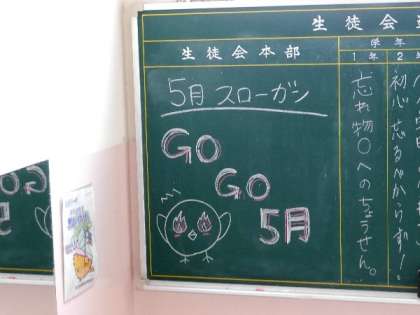 生徒会
生徒会本部
学年
1年
2年
5月 スローガン
GO
GO
5月
忘れ物0へのちょうせん。
初心忘るべからず!